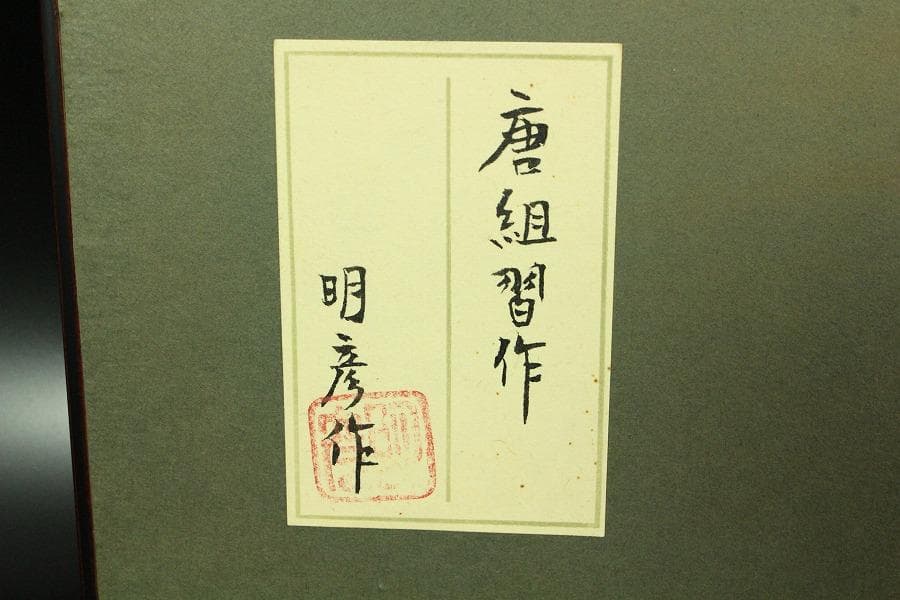 唐組習作
明彦作